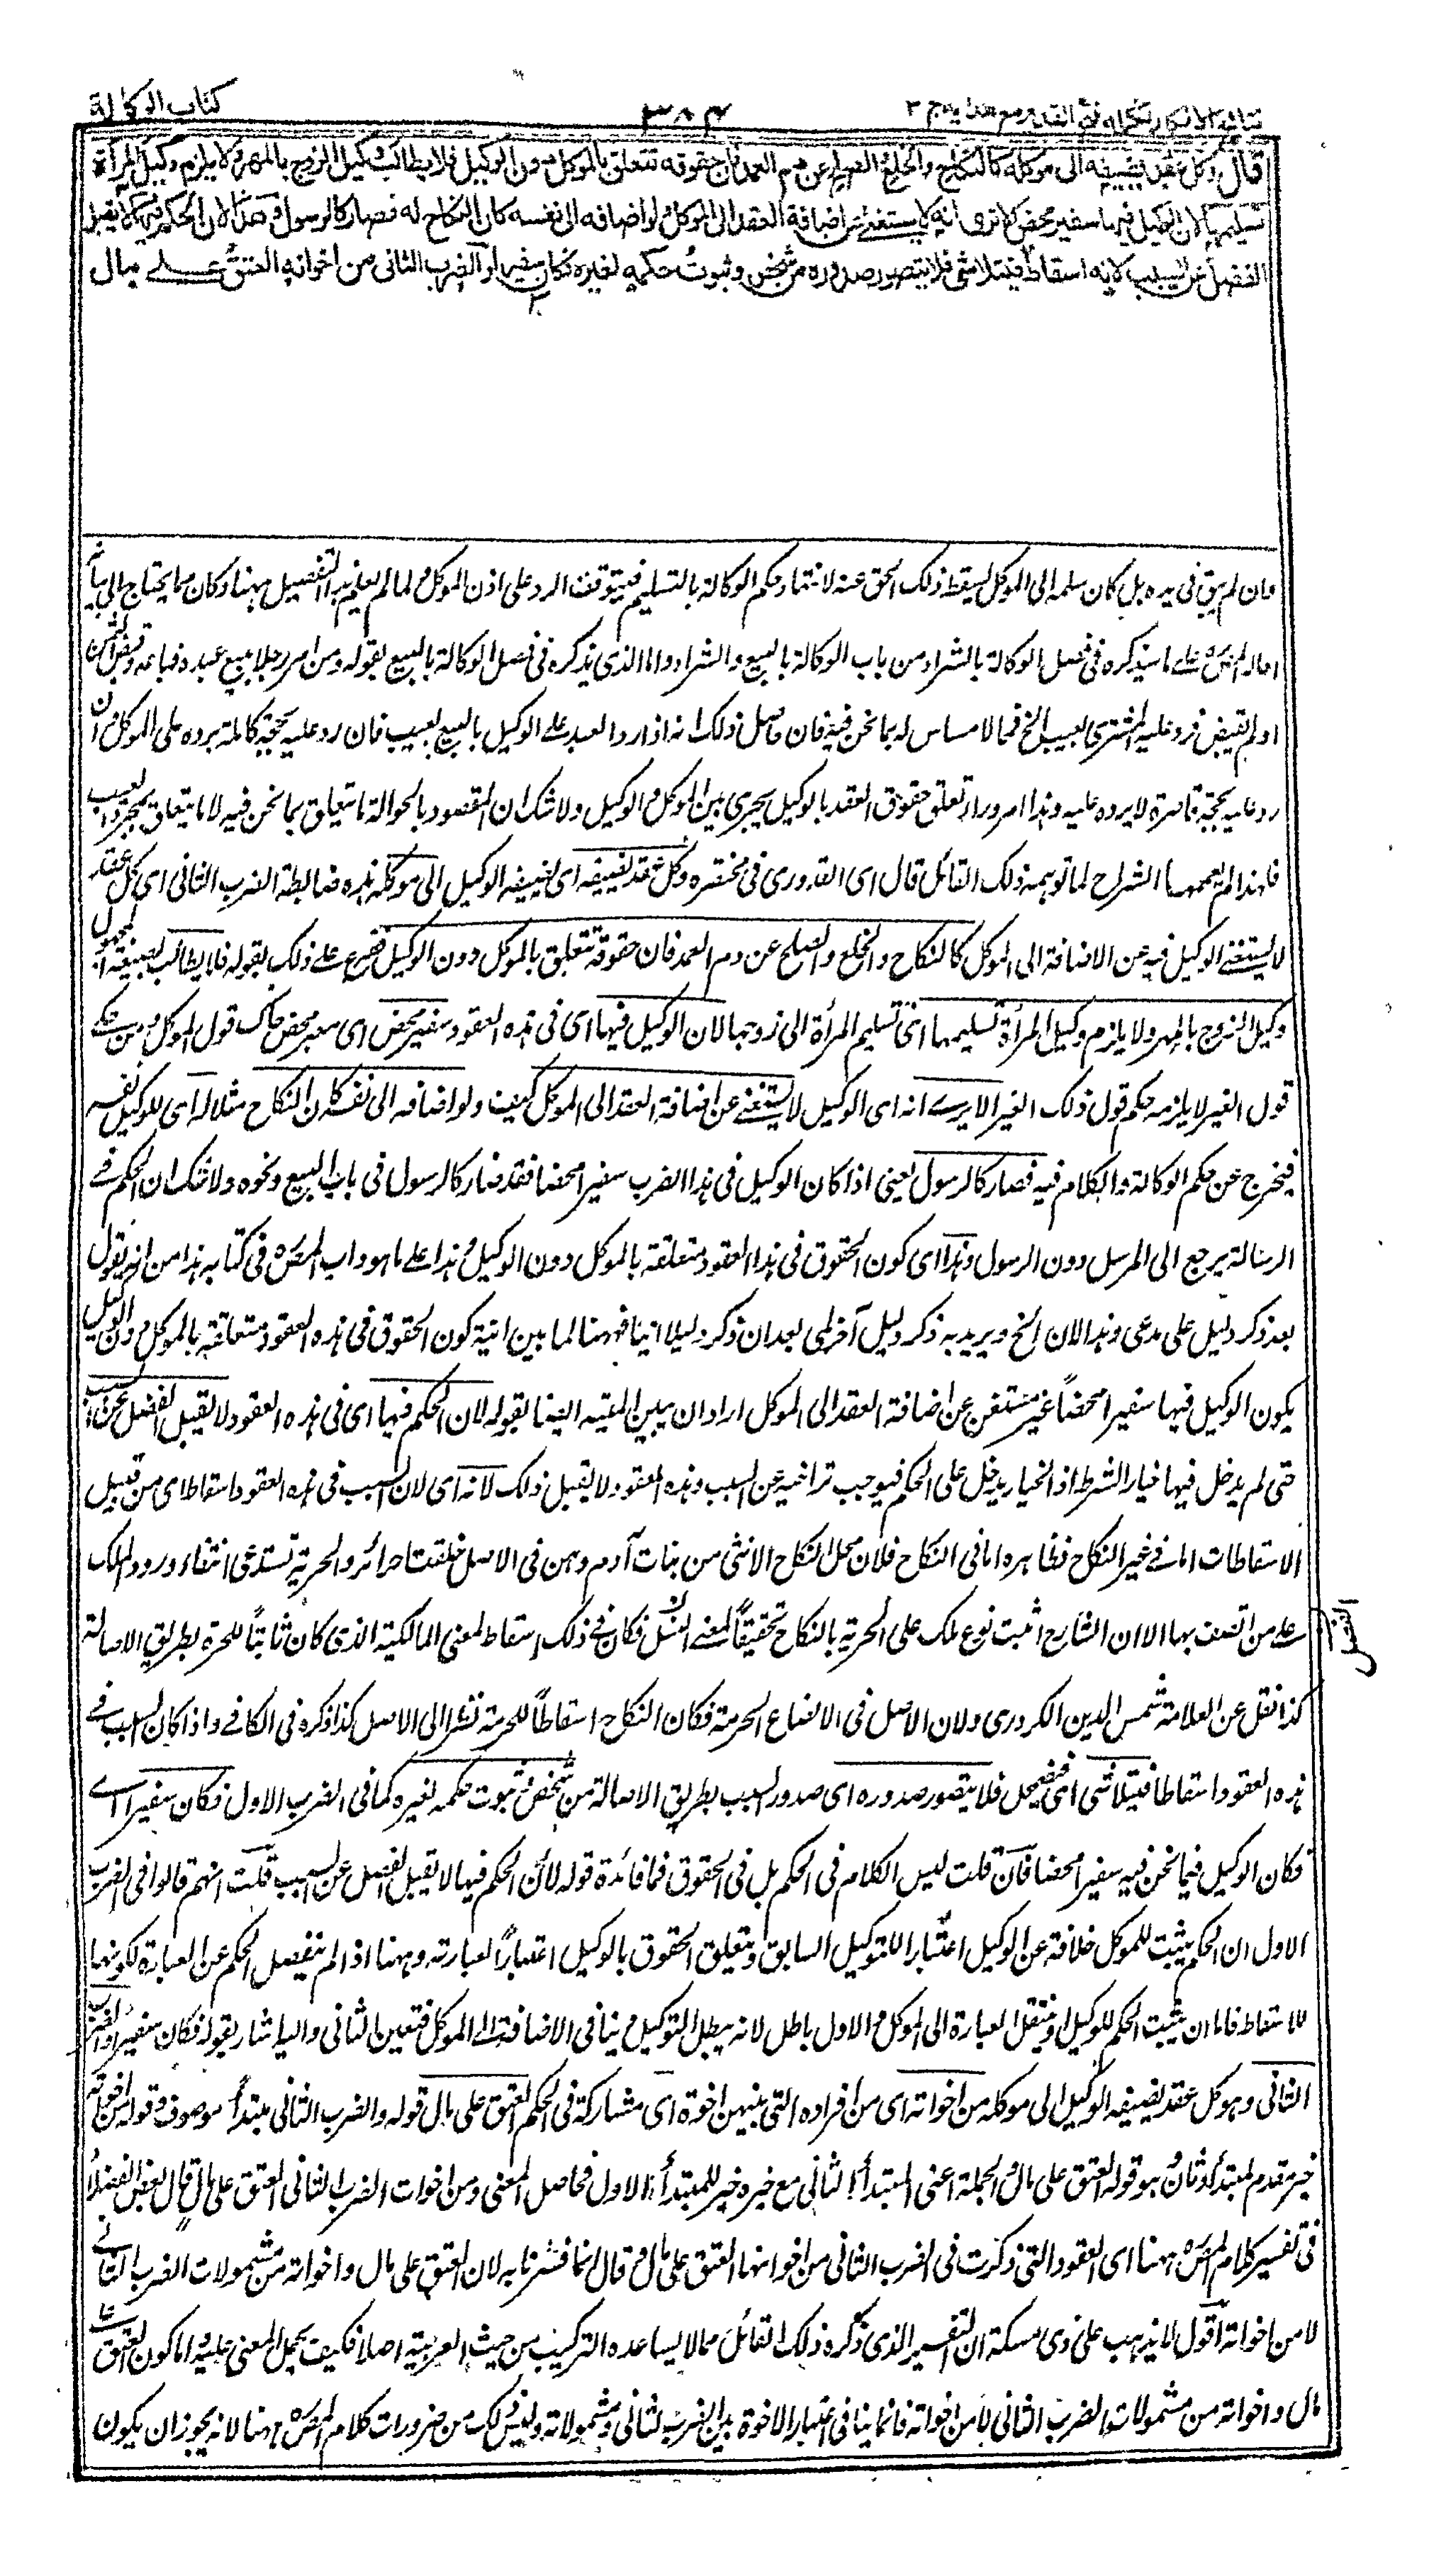 نتائج الافكار تكملة فتح القدير مع هداية ج ٣
٣٨٤
كتاب الوكالة
قال وكل عقد يضيفه الى موكله كالنكاح والخلع والصلح عن دم العمد فان حقوقه تتعلق بالموكل دون الوكيل فلا يطالب وكيل الزوج بالمهر ولا يلزم وكيل المرأة
تسليمها لان الوكيل فيها سفير محض الا ترى انه لا يستغنى عن اضافة العقد الى الموكل ولو اضافه الى نفسه كان النكاح له فصار كالرسول وهذا لان الحكم فيها لا يقبل
الفصل عن السبب لانه اسقاط فيتلاشى فلا يتصور صدوره من شخص وثبوت حكمه لغيره فكان سفيرا والضرب الثانى من اخواته العتق على مال
وان لم يبق فى يده بل كان سلمه الى الموكل يسقط ذلك الحق عنه لانتهاء حكم الوكالة بالتسليم فيتوقف الرد على اذن الموكل ولما لم يعلم هذا التفصيل ههنا وكان مما يحتاج الى بيانه
احاله المص ره على ما سيذكره فى فصل الوكالة بالشراء من باب الوكالة بالبيع والشراء واما الذى يذكره فى فصل الوكالة بالبيع بقوله ومن امر رجلا ببيع عبده فباعه وقبض الثمن
او لم يقبض فرد عليه المشترى بعيب الخ فمما لا مساس له بما نحن فيه فان حاصل ذلك انه اذا رد العبد على الوكيل بالبيع بعيب فان رد عليه بحجة كاملة يرده على الموكل وان
رد عليه بحجة قاصرة لا يرده عليه وهذا امر وراء تعلق حقوق العقد بالوكيل يجرى بين الموكل والوكيل ولا شك ان المقصود بالحوالة ما يتعلق بما نحن فيه لا ما يتعلق بمجرد العيب
فلهذا لم يعممها الشراح لما توهمه ذلك القائل قال اى القدورى فى مختصره وكل عقد يضيفه اى يضيفه الوكيل الى موكله هذه ضابطة الضرب الثانى اى كل عقد
لا يستغنى الوكيل فيه عن الاضافة الى الموكل كالنكاح والخلع والصلح عن دم العمد فان حقوقه تتعلق بالموكل دون الوكيل فرع على ذلك بقوله فلا يطالب بصيغة المجهول
وكيل الزوج بالمهر ولا يلزم وكيل المرأة تسليمها اى تسليم المرأة الى زوجها لان الوكيل فيها اى فى هذه العقود سفير محض اى معبر محض حاك قول الموكل ومن حكى
قول الغير لا يلزمه حكم قول ذلك الغير الا يرى انه اى الوكيل لا يستغنى عن اضافة العقد الى الموكل كيف ولو اضافه الى نفسه كان النكاح مثلا له اى للوكيل نفسه
فيخرج عن حكم الوكالة والكلام فيه فصار كالرسول يعنى اذا كان الوكيل فى هذا الضرب سفيرا محضا فقد صار كالرسول فى باب البيع ونحوه ولا شك ان الحكم فى
الرسالة يرجع الى المرسل دون الرسول وهذا اى كون الحقوق فى هذا العقود متعلقة بالموكل دون الوكيل وهذا على ما هو داب المص ره فى كتابه هذا من انه يقول
بعد ذكر دليل على مدعى وهذا لان الخ ويريد به ذكر دليل آخر لمى بعد ان ذكر دليلا انيا فههنا لما بين انية كون الحقوق فى هذه العقود متعلقة بالموكل دون الوكيل
يكون الوكيل فيها سفيرا محضاً غير مستغن عن اضافة العقد الى الموكل اراد ان يبين لميته ايضا بقوله لان الحكم فيها اى فى هذه العقود لا يقبل الفصل عن السبب
حتى لم يدخل فيها خيار الشرط اذ الخيار يدخل على الحكم فيوجب تراخيه عن السبب وهذه العقود لا يقبل ذلك لانه اى لان السبب فى هذه العقود اسقاط اى من قبيل
الاسقاطات اما فى غير النكاح فظاهر واما فى النكاح فلان محل النكاح الانثى من بنات آدم وهن فى الاصل خلقت حرائر والحرية تستدعى انتفاء ورود الملك
على من اتصف بها الا ان الشارع اثبت نوع ملك على الحرية بالنكاح تحقيقاً لمعنى النسل فكان فى ذلك اسقاط لمعنى المالكية الذى كان ثابتاً للحرة بطريق الاصالة
كذا نقل عن العلامة شمس الدين الكردرى ولان الاصل فى الابضاع الحرمة فكان النكاح اسقاطاً للحرمة نظرا الى الاصل كذا ذكره فى الكافى واذا كان السبب فى
هذه العقود اسقاطا فيتلاشى اى فيضمحل فلا يتصور صدوره اى صدور السبب بطريق الاصالة من شخص وثبوت حكمه لغيره كما فى الضرب الاول فكان سفيرا اى
فكان الوكيل فيما نحن فيه سفيرا محضا فان قلت ليس الكلام فى الحكم بل فى الحقوق فما فائدة قوله لان الحكم فيها لا يقبل الفصل عن السبب قلت انهم قالوا فى الضرب
الاول ان الحكم يثبت للموكل خلافة عن الوكيل اعتبارا للتوكيل السابق ويتعلق الحقوق بالوكيل اعتباراً لعبارته وههنا اذا لم ينفصل الحكم عن العبارة لكونها
للاسقاط فاما ان يثبت الحكم للوكيل او ينتقل العبارة الى الموكل والاول باطل لانه يبطل التوكيل وينافى الاضافة الى الموكل فتعين الثانى واليه اشار بقوله فكان سفيرا والضرب
الثانى وهو كل عقد يضيفه الوكيل الى موكله من اخواته اى من افراده التى بينهن اخوة اى مشاركة فى الحكم العتق على مال قوله والضرب الثانى مبتدأ موصوف وقوله من اخواته
خبر مقدم لمبتدأ ثان وهو قوله العتق على مال والجملة اعنى المبتدأ الثانى مع خبره خبر للمبتدأ الاول فحاصل المعنى ومن اخوات الضرب الثانى العتق على مال قال بعض الفضلاء
فى تفسير كلام المص ره ههنا اى العقود التى ذكرت فى الضرب الثانى من اخواتها العتق على مال وقال انما فسرنا به لان العتق على مال واخواته من مشمولات الضرب الثانى
لا من اخواته اقول لا يذهب على ذى مسكة ان التفسير الذى ذكره ذلك القائل مما لا يساعده التركيب من حيث العربية اصلا فكيف يحمل المعنى عليه واما كون العتق على
مال واخواته من مشمولات الضرب الثانى لا من اخواته فانما ينافى اعتبار الاخوة بين الضرب الثانى ومشمولاته وليس ذلك من ضرورات كلام المص ره ههنا لانه يجوز ان يكون
النسل